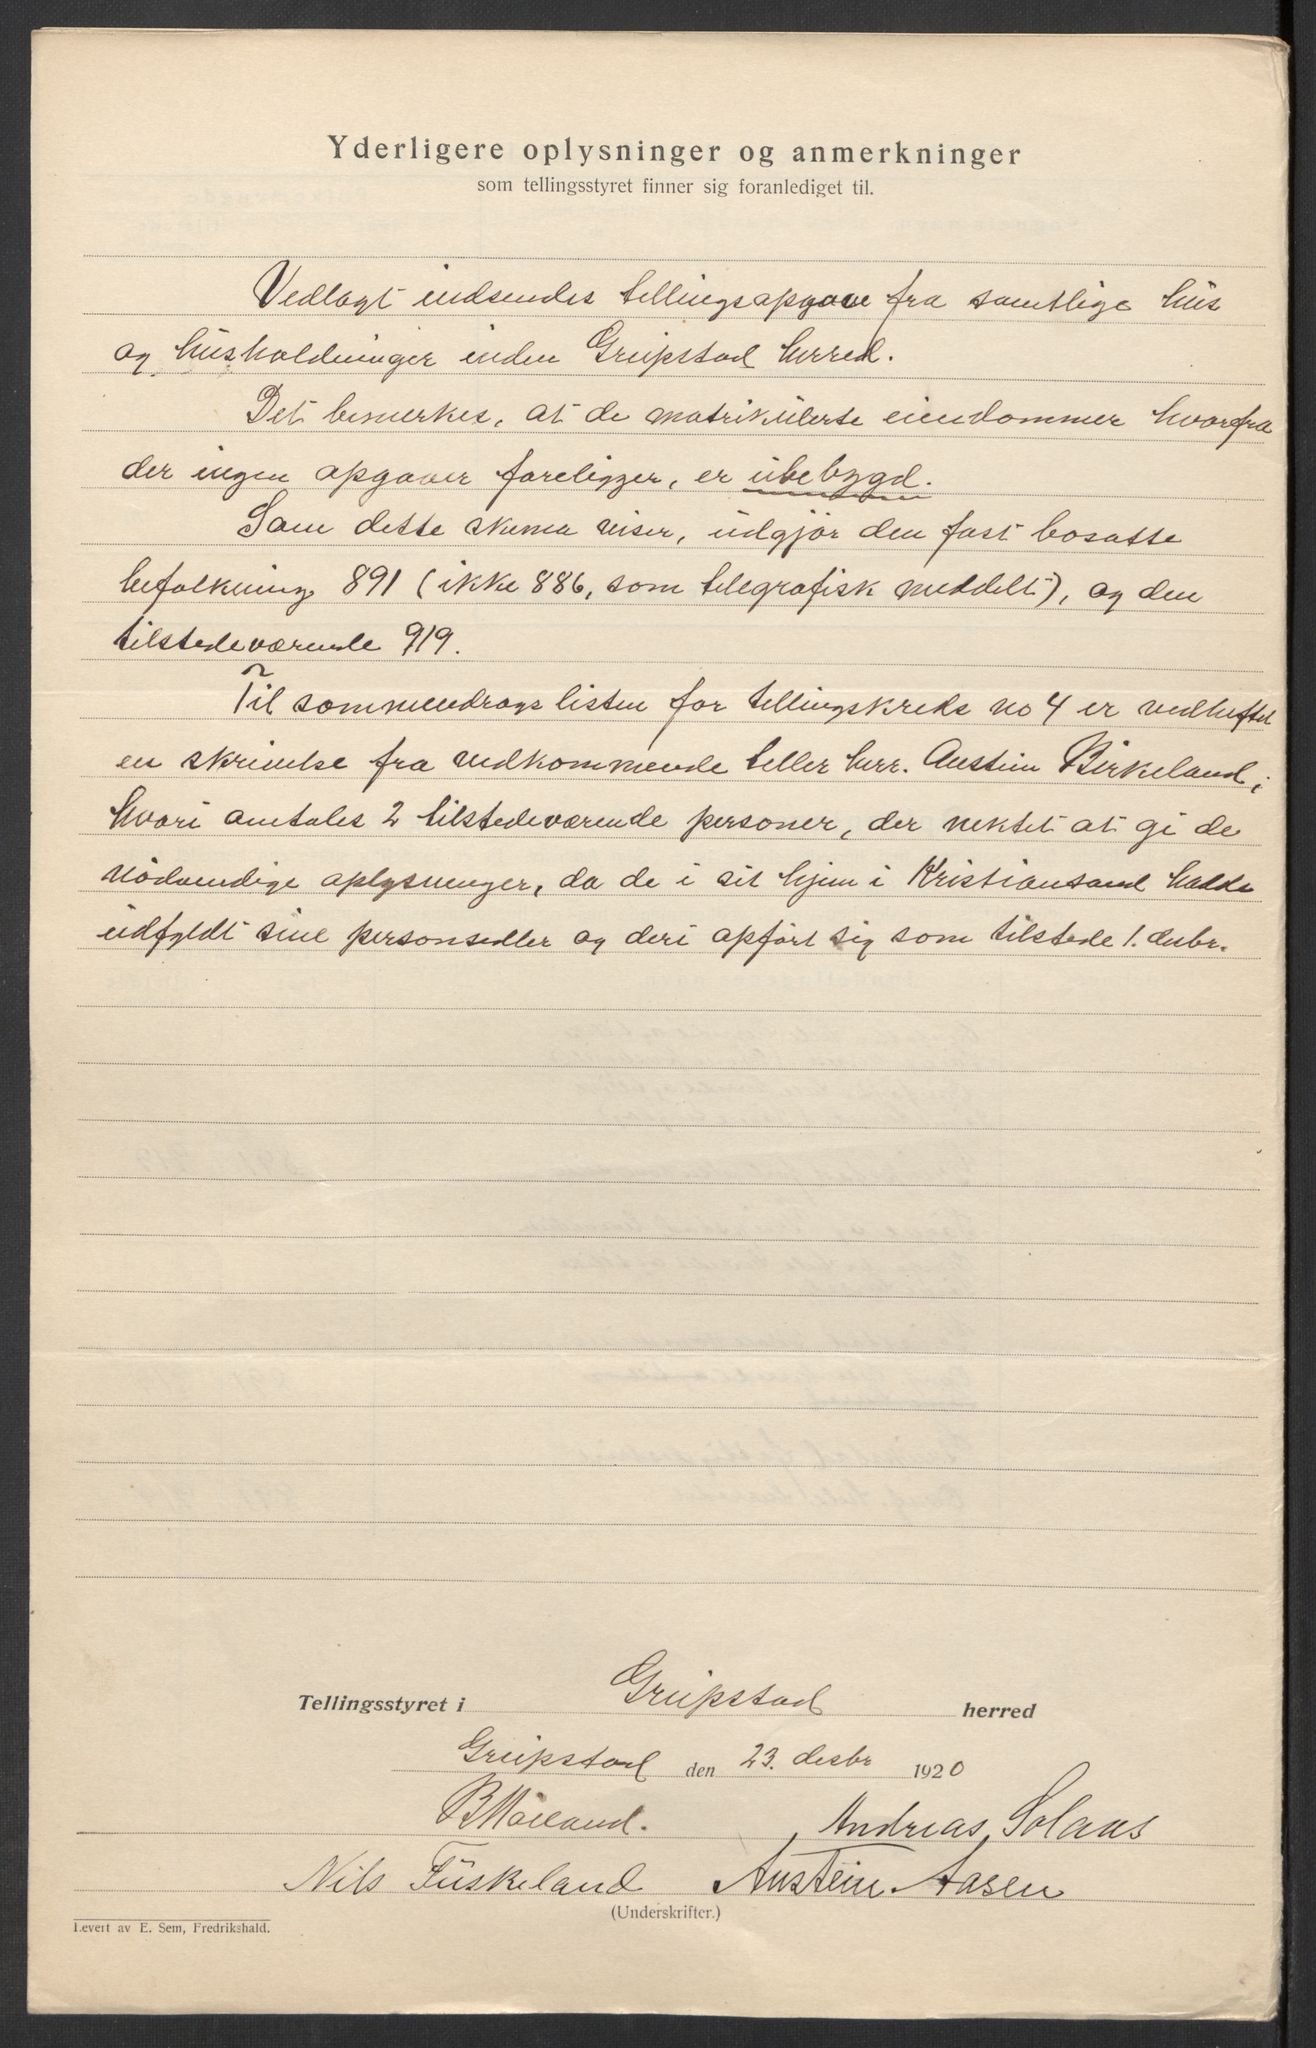 Yderligere oplysninger og anmerkninger
som tellingsstyret finner sig foranlediget til.
Vedlagt indsendes tellingsopgave fra samtlige hus
og husholdninger inden Greipstad herred.
Det bemerkes, at de matrikulerte eiendommer hvorfra
der ingen opgaver foreligger, er ubebygd.
Som dette skema viser, udgjør den fast bosatte
befolkning 891 (ikke 886, som telegrafisk meddelt), og den
tilstedeværende 919.
Til sammendragslisten for tellingskreds no 4 er vedheftet
en skrivelse fra vedkommende teller herr. Austein Birkeland,
hvori omtales 2 tilstedeværende personer, der nektet at gi de
nödvendige oplysninger, da de i sit hjem i Kristiansand hadde
udfyldt sine personsedler og deri opført sig som tilstede 1. desbr.
Tellingsstyret i Greipstad herred
Greipstad den 23. desbr 1920
B Møland. Andreas Solaas
Nils Fuskeland Austein Aasen
(Underskrifter.)
Levert av E. Sem, Fredrikshald.